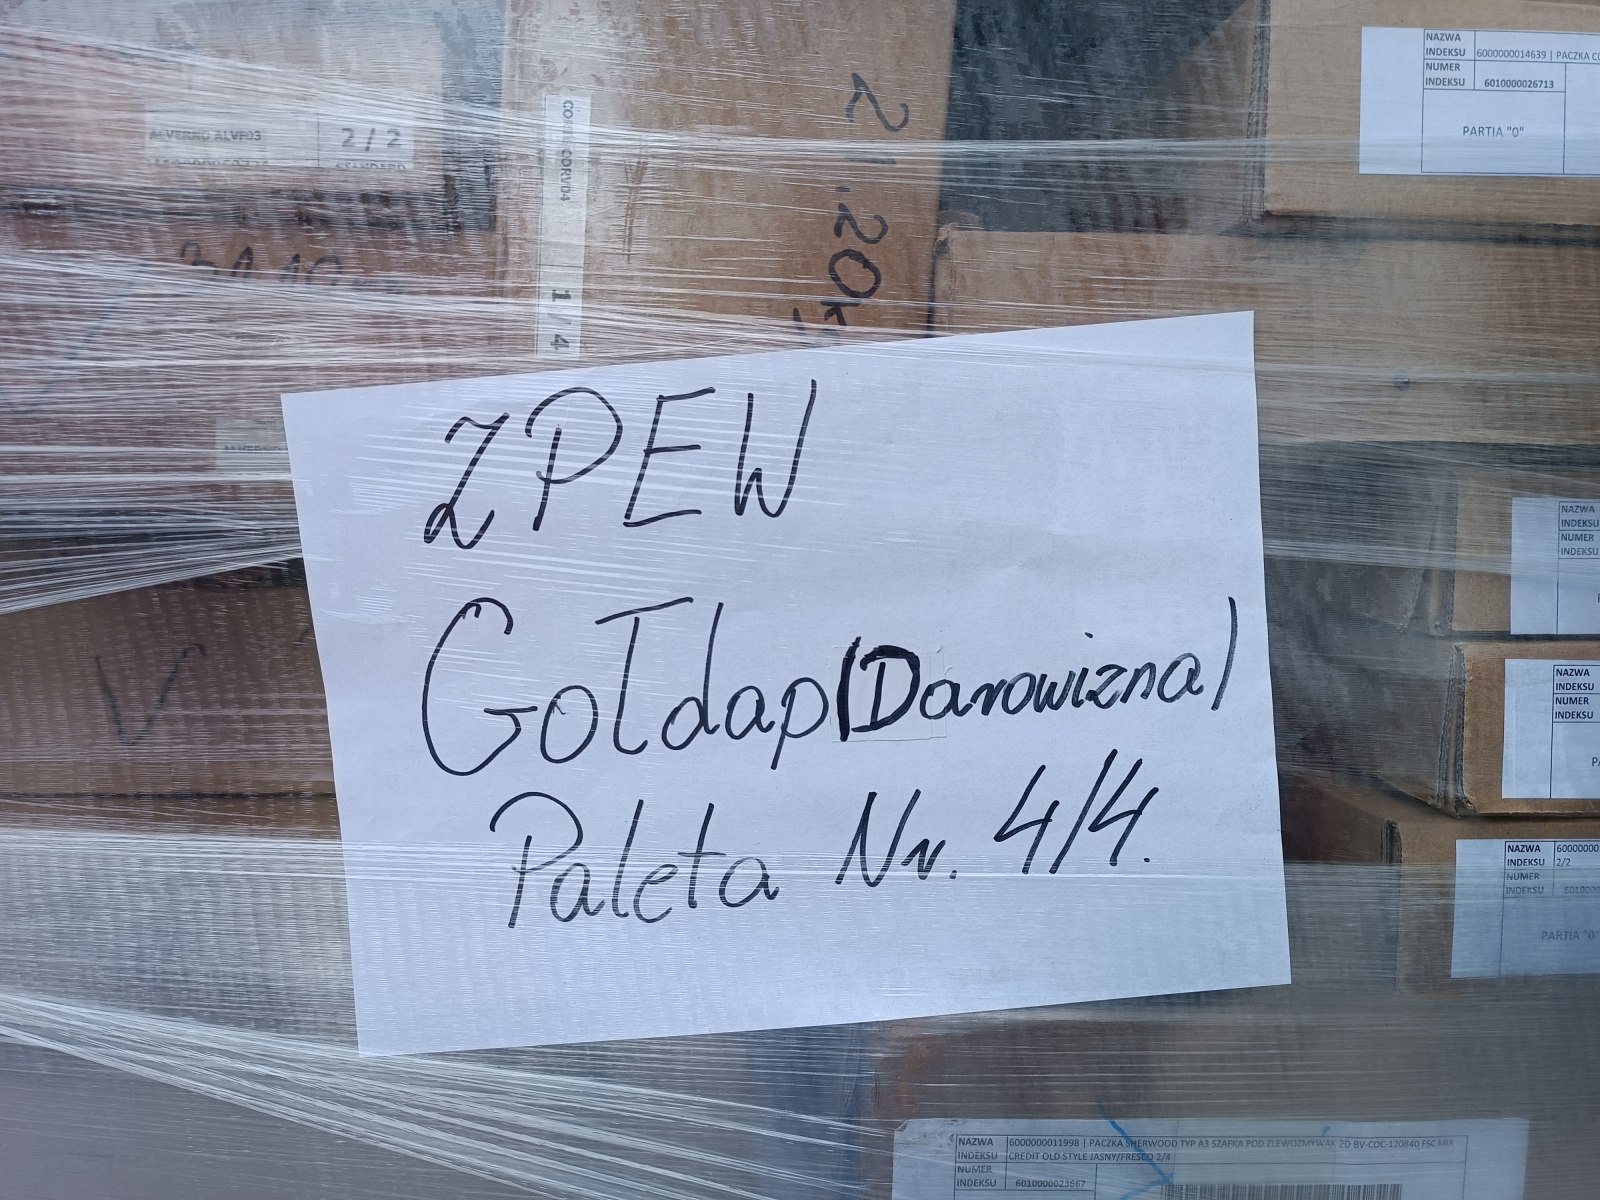 ALVERNO ALVF03
2 / 2
STANDARD
CORV04
1 / 4
21.20k
NAZWA INDEKSU
6000000014639 | PACZKA
NUMER INDEKSU
6010000026713
PARTIA "0"
ZPEW
Gołdap (Darowizna)
Paleta Nr. 4/4.
ALVERNO
NAZWA
INDEKSU
NUMER
INDEKSU
NAZWA
INDEKSU
NUMER
INDEKSU
NAZWA INDEKSU
60000000
2/2
NUMER INDEKSU
PARTIA "0"
NAZWA INDEKSU
6000000011998 | PACZKA SHERWOOD TYP A3 SZAFKA POD ZLEWOZMYWAK 2D BV-COC-120840 FSC MIX
CREDIT OLD STYLE JASNY/FRESCO 2/4
NUMER INDEKSU
6010000023667